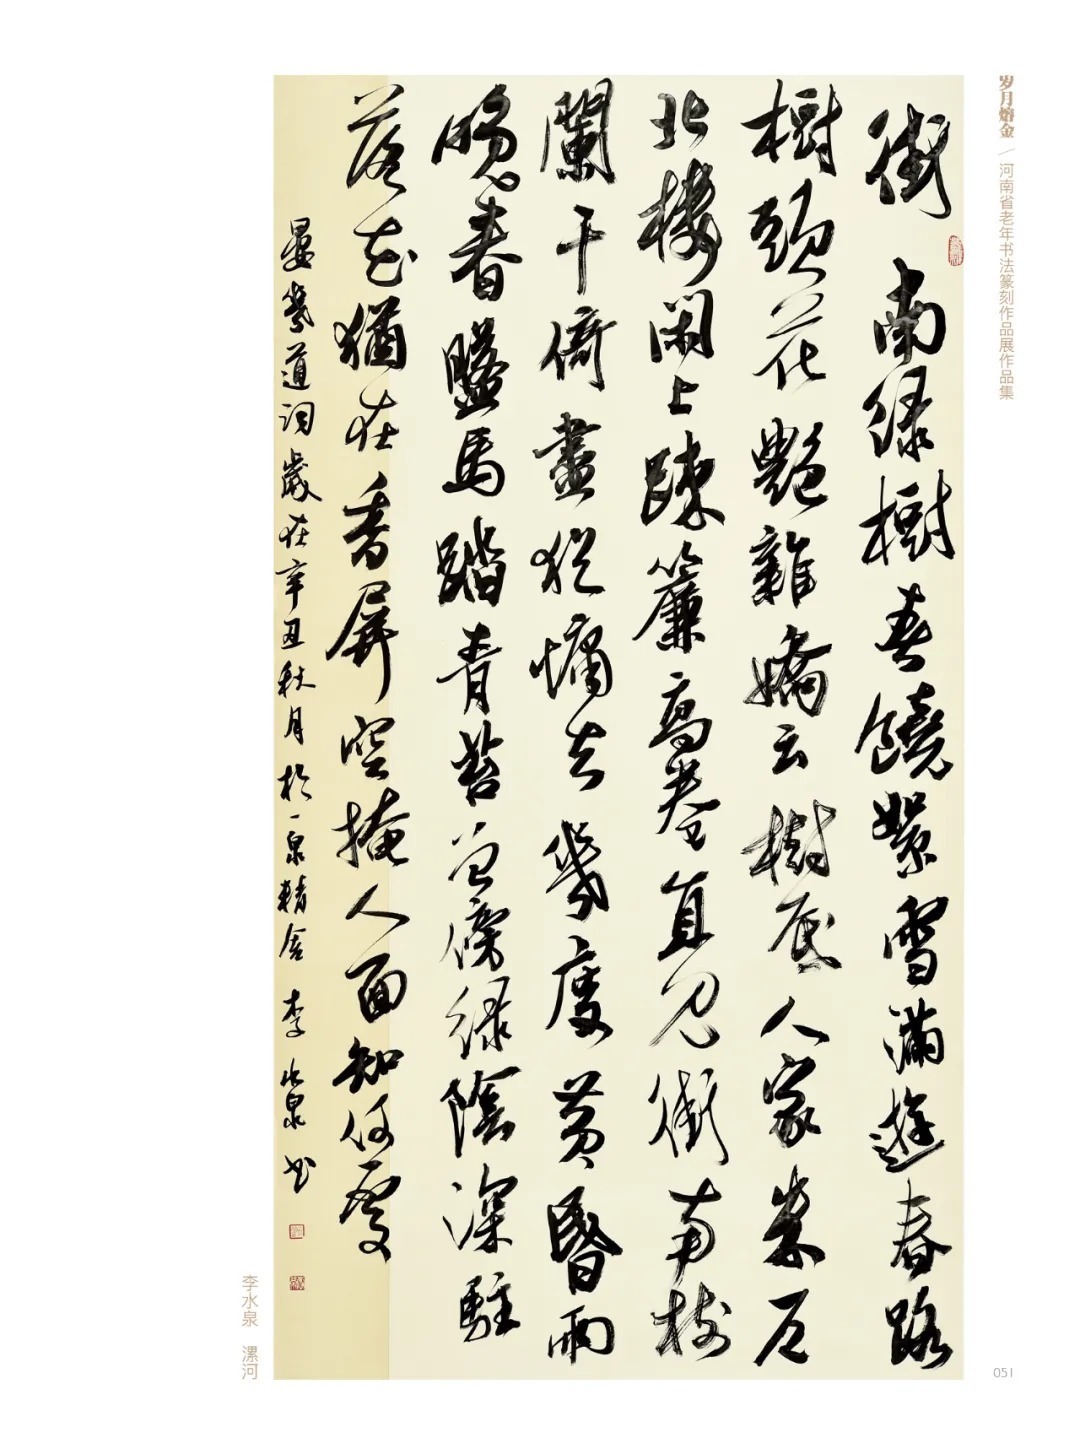 岁月熔金／河南省老年书法篆刻作品展作品集
街南绿樹春饒絮雪滿遊春路
樹頭花艷雜嬌云樹底人家朱户
北樓閑上疎簾高卷直见街南树
闌干倚盡犹慵去幾度黄昏雨
晚春盤馬踏青苔曾傍绿陰深駐
落花猶在香屏空掩人面知何處
晏幾道词歲在辛丑秋月於一泉精舍李水泉书
李水泉 漯河
051